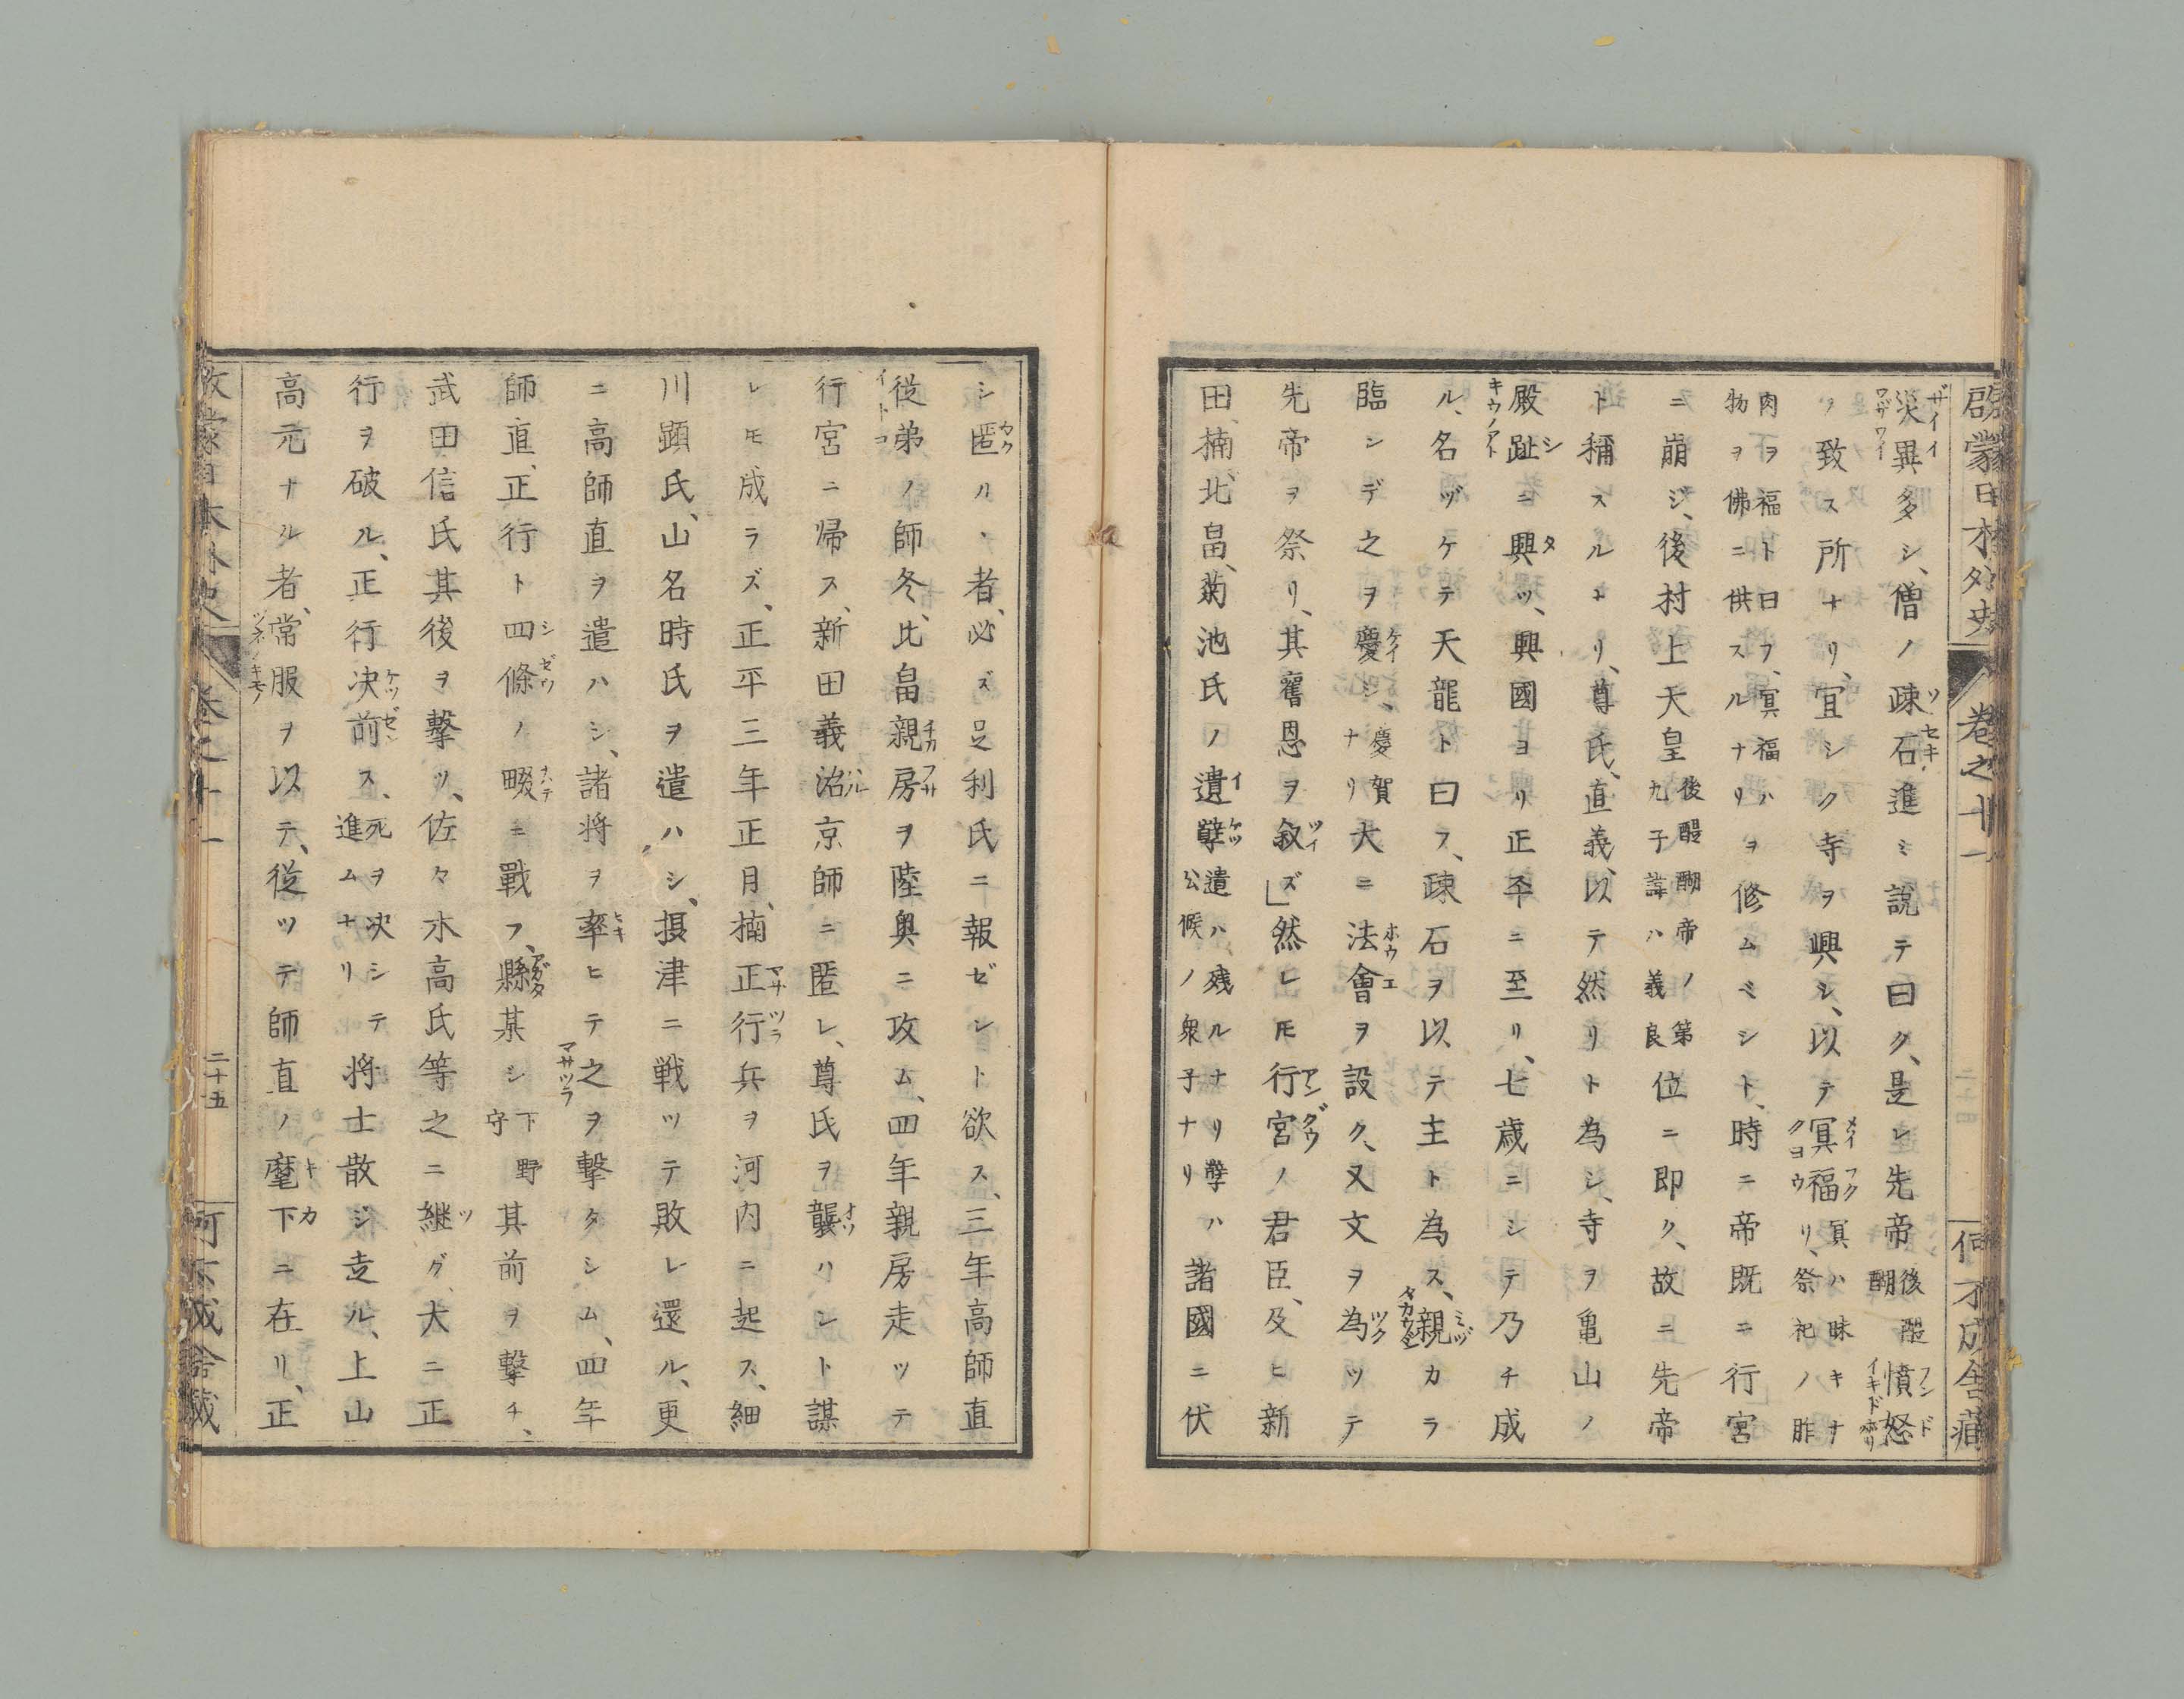 啓蒙日本外史 巻之十一 何不成舎蔵
災異多シ、僧ノ疎石進ミ説テ曰ク、是レ先帝後醍醐憤怒
ヲ致ス所ナリ、宜シク寺ヲ興シ、以テ冥福冥ハ昧キナリ、祭祀ノ胙
肉ヲ福ト曰フ、冥福ハ物ヲ佛ニ供スルナリヲ修ムベシト、時ニ帝既ニ行宮
ニ崩ジ、後村上天皇後醍醐帝ノ第九子諱ハ義良位ニ即ク、故ニ先帝
ト稱スルナリ、尊氏、直義、以テ然リト為シ、寺ヲ亀山ノ
殿趾ニ興ツ、興國ヨリ正平ニ至リ、七歳ニシテ乃チ成
ル、名ヅケテ天龍ト曰フ、疎石ヲ以テ主ト為ス、親カラ
臨シデ之ヲ慶シ、慶賀ナリ大ニ法會ヲ設ク、又文ヲ為ツテ
先帝ヲ祭リ、其舊恩ヲ叙ズ」然レ𪜈行宮ノ君臣、及ヒ新
田、楠、北畠、菊池氏ノ遺孽遺ハ残ルナリ孽ハ公候ノ衆子ナリ諸國ニ伏
シ匿ハヽ者、必ズ足利氏ニ報ゼント欲ス、三年高師直
従弟ノ師冬、北畠親房ヲ陸奥ニ攻ム、四年親房走ッテ
行宮ニ帰ス、新田義治京師ニ匿レ、尊氏ヲ襲ハント謀
レ𪜈成ラズ、正平三年正月、楠正行兵ヲ河内ニ起ス、細
川顕氏、山名時氏ヲ遣ハシ、摂津ニ戦ッテ敗レ還ル、更
ニ高師直ヲ遣ハシ、諸将ヲ率ヒテ之ヲ撃タシム、四年
師直、正行ト四條ノ畷ニ戰フ、縣某シ下野守其前ヲ撃チ、
武田信氏其後ヲ撃ツ、佐々木高氏等之ニ継グ、大ニ正
行ヲ破ル、正行決前ス、死ヲ决シテ進ムナリ将士散ジ走ル、上山
高元ナル者、常服ヲ以テ、従ツテ師直ノ麾下ニ在リ、正
啓蒙日本外史 巻之十一 二十五 何不成舎蔵